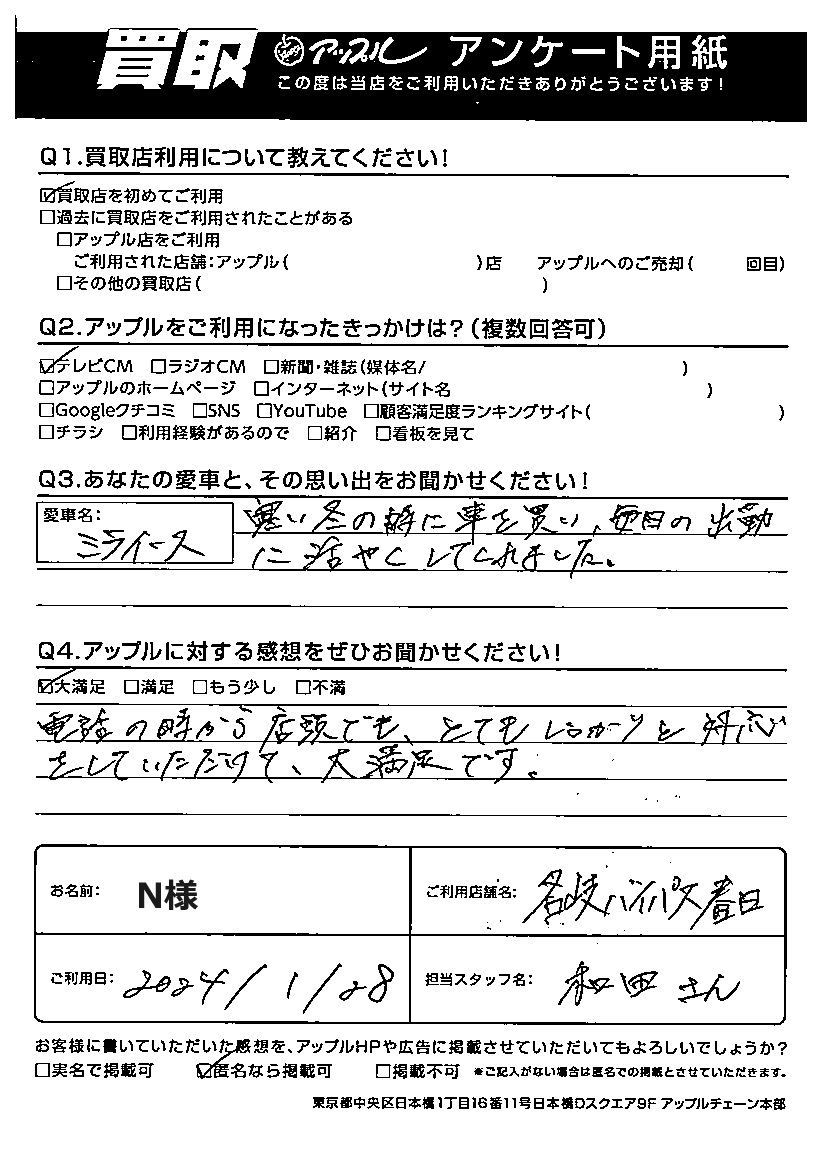 買取 アップル アンケート用紙
この度は当店をご利用いただきありがとうございます!
Q1.買取店利用について教えてください!
☑買取店を初めてご利用
□過去に買取店をご利用されたことがある
□アップル店をご利用
ご利用された店舗:アップル( )店 アップルへのご売却( 回目)
□その他の買取店( )
Q2.アップルをご利用になったきっかけは?(複数回答可)
☑テレビCM □ラジオCM □新聞・雑誌(媒体名/ )
□アップルのホームページ □インターネット(サイト名 )
□Googleクチコミ □SNS □YouTube □顧客満足度ランキングサイト( )
□チラシ □利用経験があるので □紹介 □看板を見て
Q3.あなたの愛車と、その思い出をお聞かせください!
愛車名:
ミライース
寒い冬の時に車を買い、毎日の出勤
に活やくしてくれました。
Q4.アップルに対する感想をぜひお聞かせください!
☑大満足 □満足 □もう少し □不満
電話の時から店頭でも、とてもしっかりと対応
をしていただけて、大満足です。
お名前: N様
ご利用店舗名: 名岐バイパス春日
ご利用日: 2024/1/28
担当スタッフ名: 和田さん
お客様に書いていただいた感想を、アップルHPや広告に掲載させていただいてもよろしいでしょうか?
□実名で掲載可 ☑匿名なら掲載可 □掲載不可 *ご記入がない場合は匿名での掲載とさせていただきます。
東京都中央区日本橋1丁目16番11号日本橋Dスクエア9F アップルチェーン本部